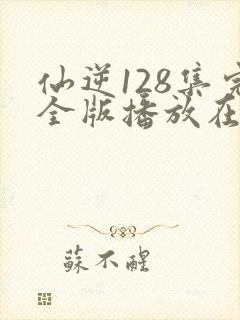 仙逆128集完
全版播放在
蘇不醒